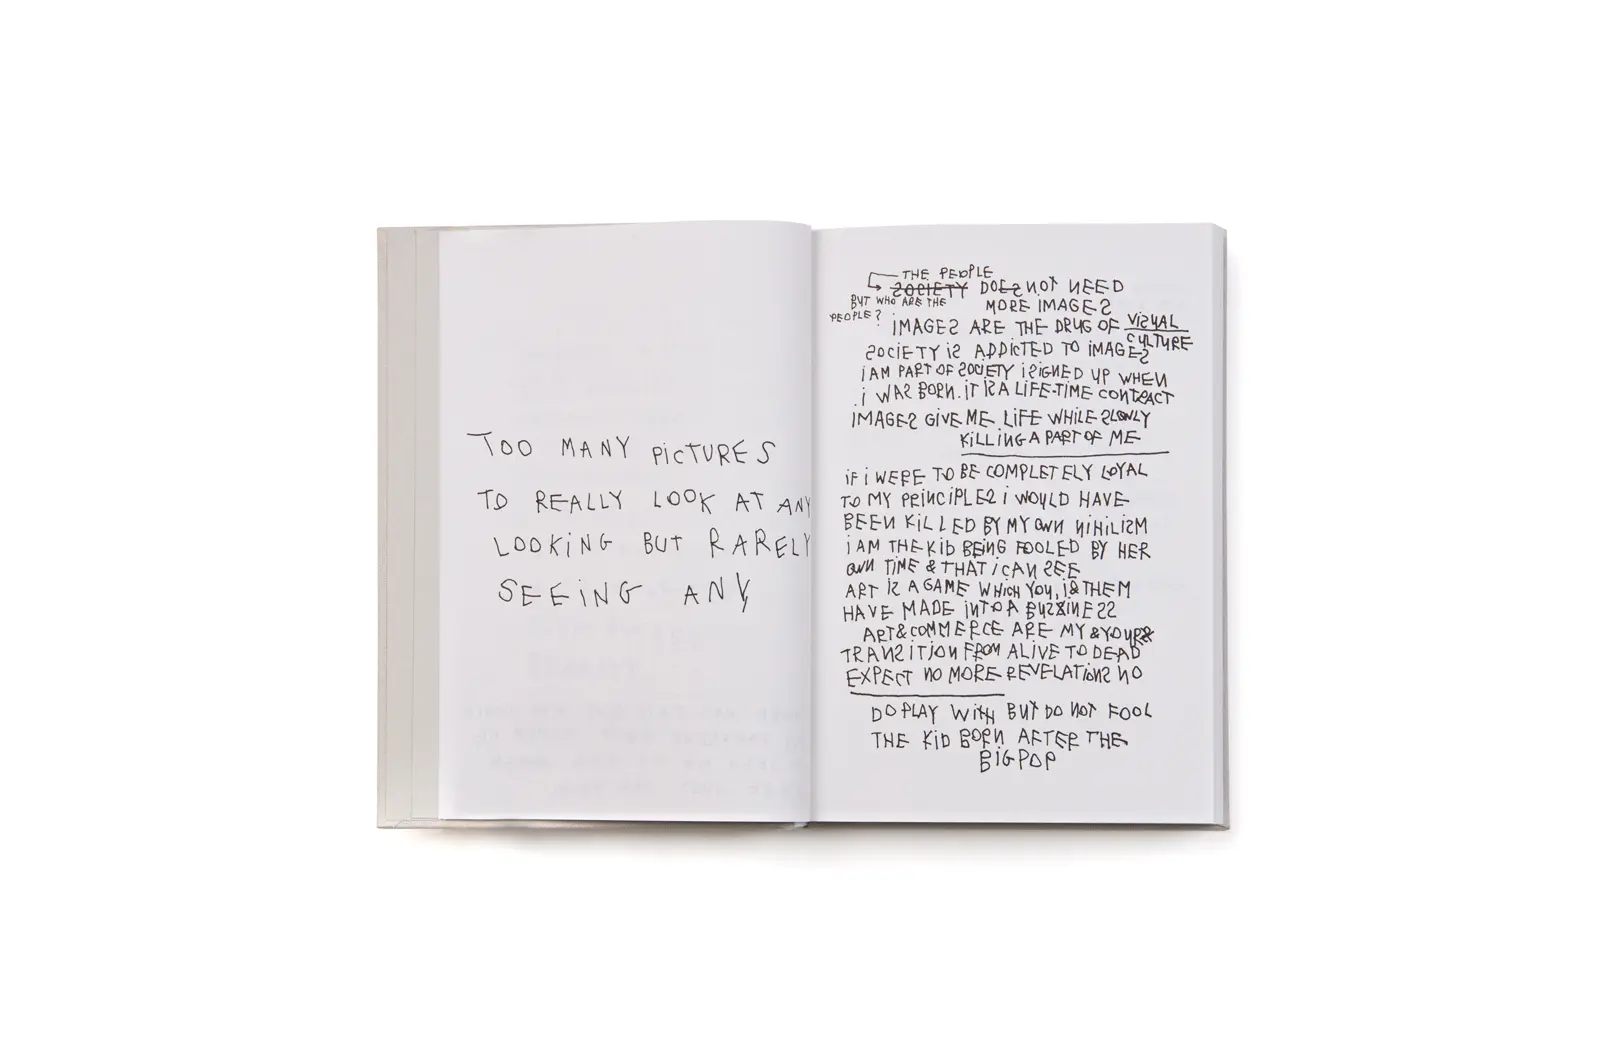 TOO MANY PiCTURES
TO REALLY LOOK AT ANY
LOOKiNG BUT RARELY
SEEiNG ANY
THE PEOPLE
SOCIETY DOES NOT NEED
BUT WHO ARE THE
PEOPLE?
MORE iMAGES
iMAGES ARE THE DRUG OF ViSUAL
CULTURE
SOCiETY iS ADDiCTED TO iMAGES
i AM PART OF SOCiETY i SiGNED UP WHEN
i WAS BORN. iT iS A LiFE-TiME CONTRACT
iMAGES GiVE ME LiFE WHiLE SLOWLY
KiLLiNG A PART OF ME
iF i WERE TO BE COMPLETELY LOYAL
TO MY PRiNCiPLES i WOULD HAVE
BEEN KiLLED BY MY OWN NiHiLiSM
i AM THE KiD BEiNG FOOLED BY HER
OWN TiME & THAT i CAN SEE
ART iS A GAME WHiCH YOU, i & THEM
HAVE MADE iNTO A BUSiNESS
ART & COMMERCE ARE MY & YOUR
TRANSiTiON FROM ALiVE TO DEAD
EXPECT NO MORE REVELATiONS NO
DO PLAY WiTH BUT DO NOT FOOL
THE KiD BORN AFTER THE
BiG POP